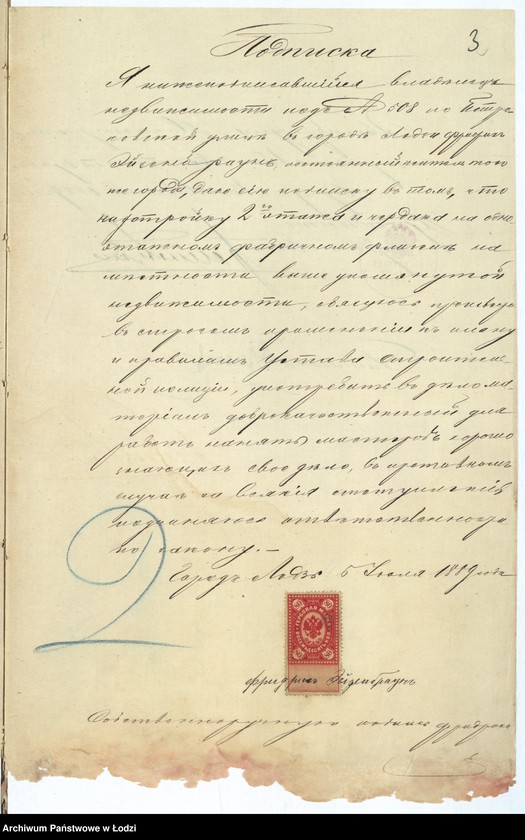 3
Подписка
Я нижеподписавшийся владелецъ
недвижимости подъ № 608 по Петро
ковской улицѣ въ городѣ Лодзи Фридрихъ
Эйзенбраунъ, постоянный житель того
же города, даю сію подписку въ томъ, что
надстройку 2го этажа и чердака на одно
этажномъ фабричномъ флигелѣ на
мѣстности выше упомянутой
недвижимости, обязуюсь произвесть
въ строгомъ примѣненіи къ плану
и правиламъ Устава строитель-
ной полиціи, употребить въ дѣло ма-
теріалъ доброкачественный для
работъ нанять мастеровъ хорошо
знающихъ свое дѣло, въ противномъ
случаѣ за всякія отступленія
подчиняюсь отвѣтственности
по закону.—
Городъ Лодзь 5 Іюля 1889 года
2
80 80
80 80
Фридрихъ Эйзенбраунъ
Собственноручную подпись Фридриха
Archiwum Państwowe w Łodzi